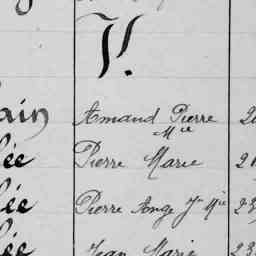 V.
ain Armand Pierre 2
Mie
ée Pierre Marie 21
ée Pierre Ange Jn Mie 23
ée Jean Marie 23